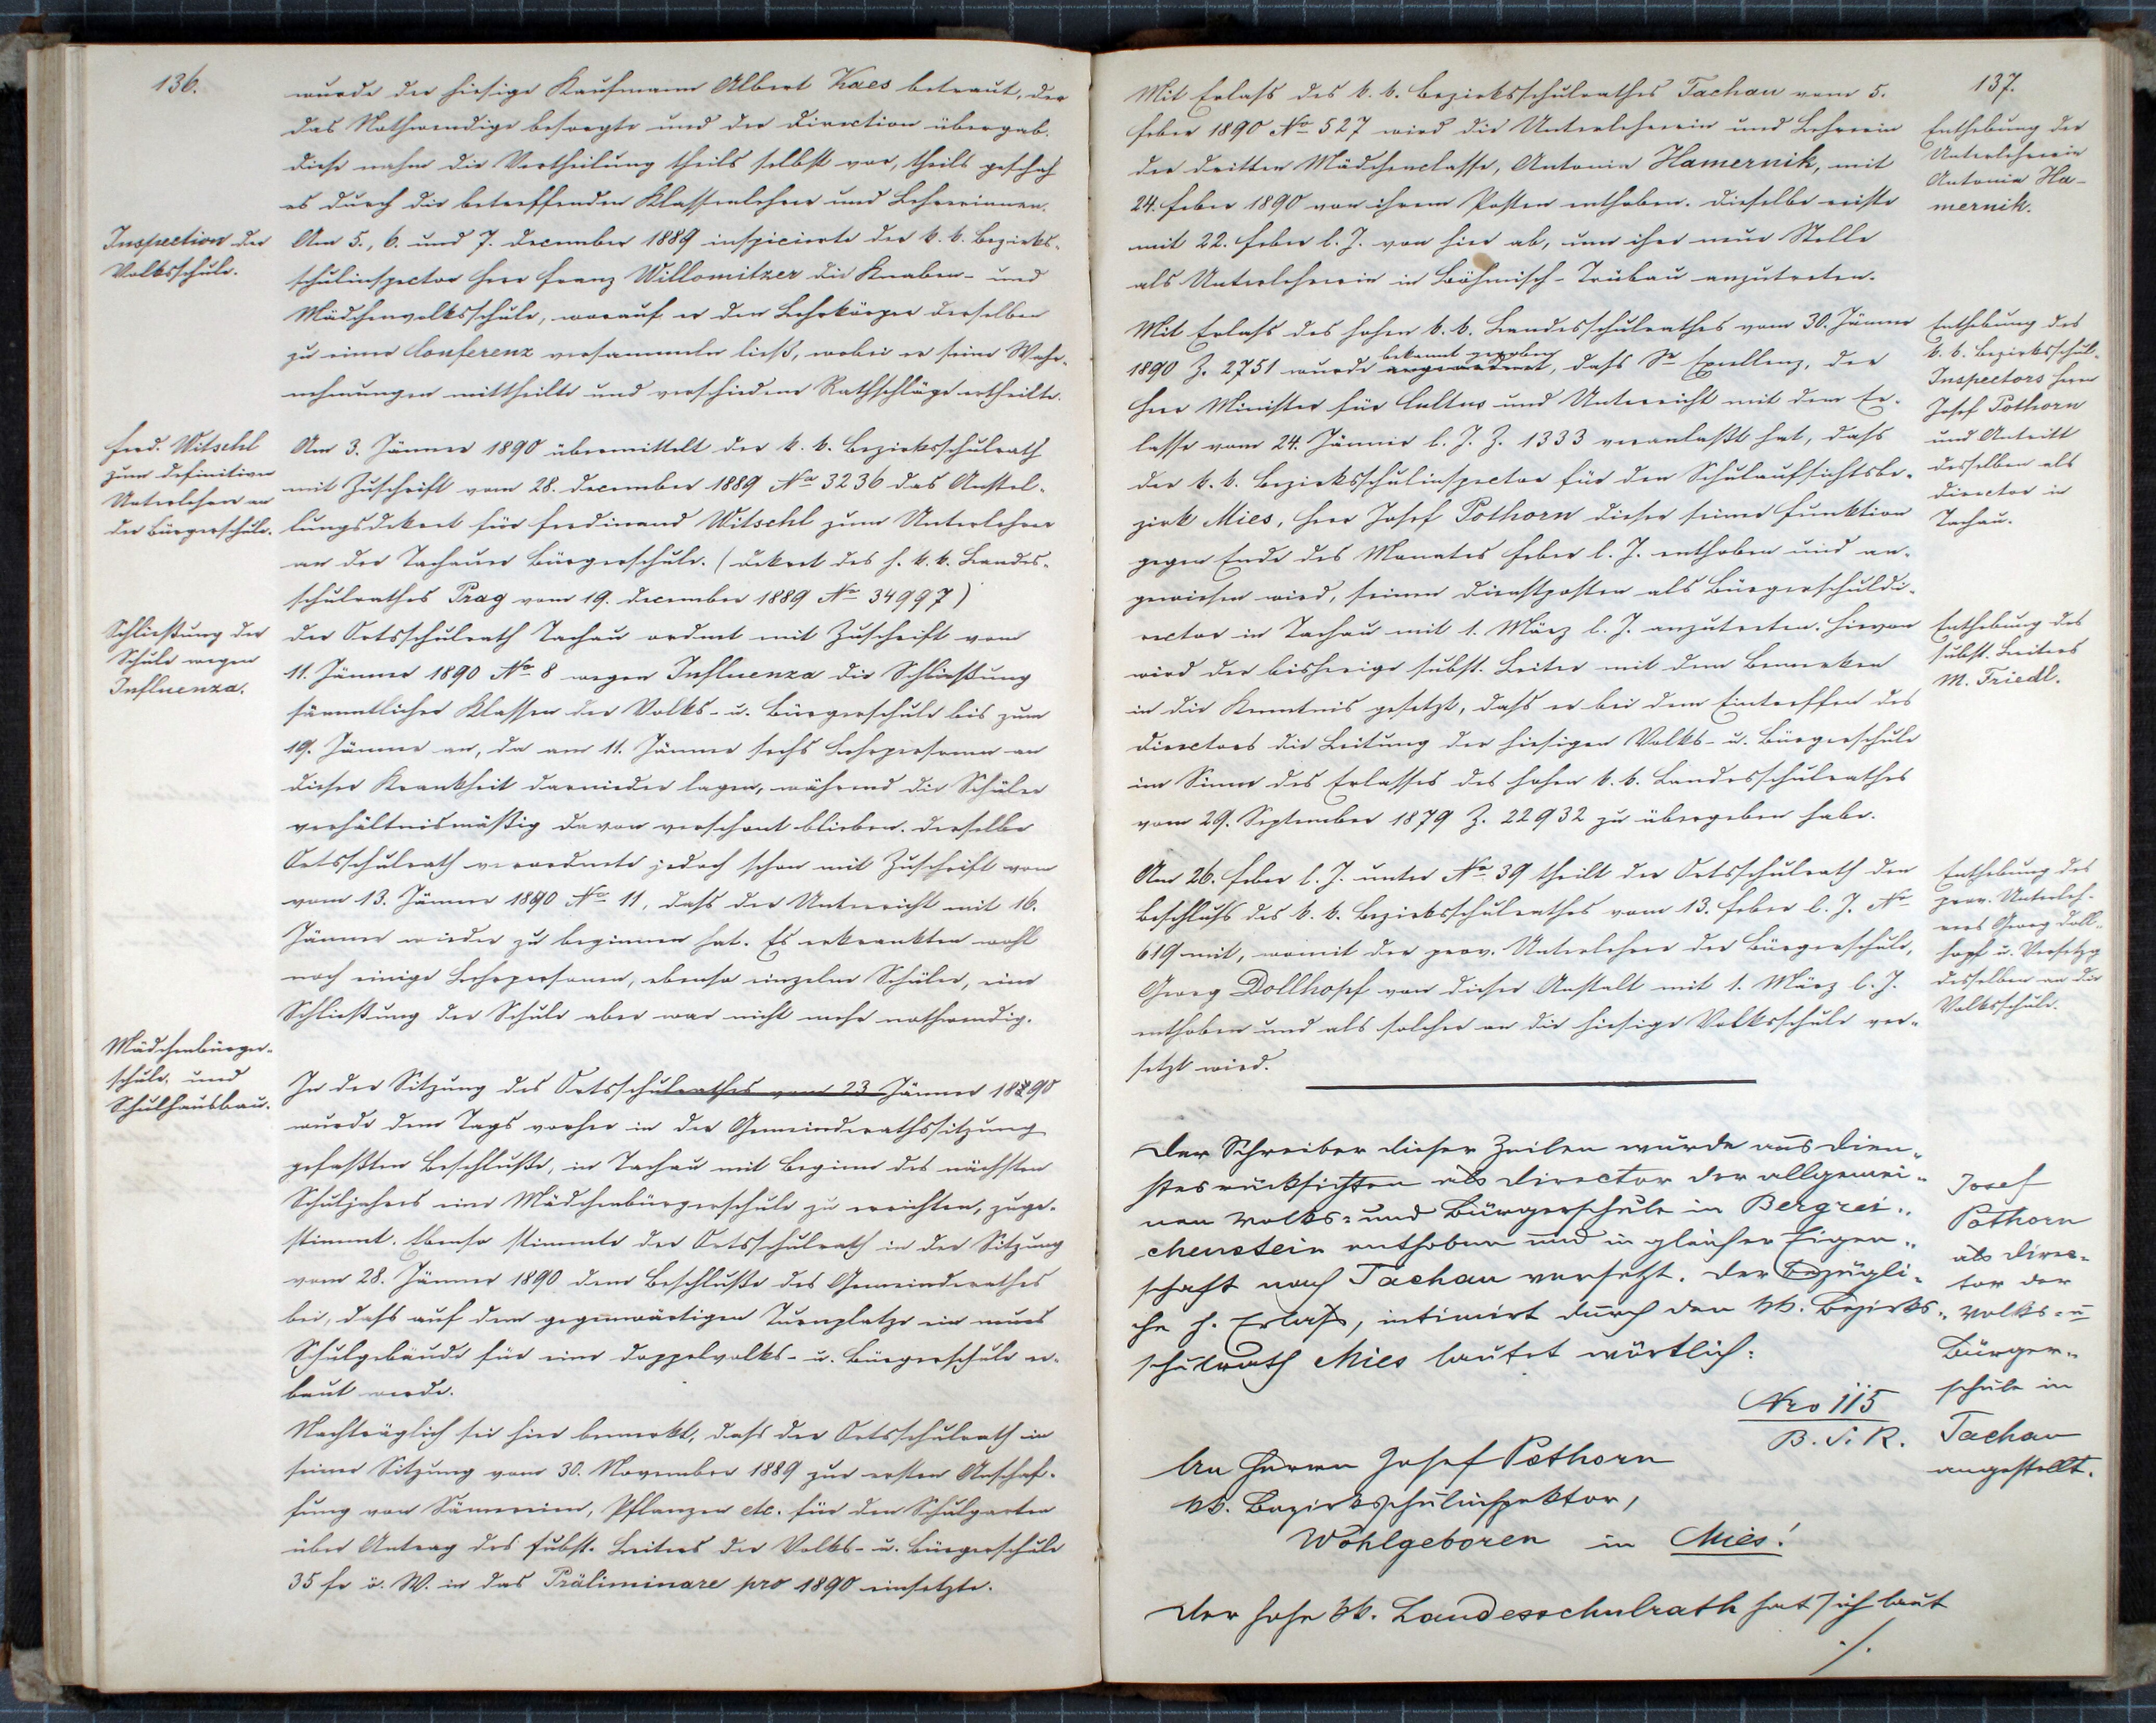 136.
wurde der hiesige Kaufmann Albert Kaes betraut, der
das Nothwendige besorgte und der Direction übergab.
Diese nahm die Vertheilung theils selbst vor, theils geschah
es durch die betreffenden Klassenlehrer und Lehrerinnen.
Inspection der
Volksschule.
Am 5., 6. und 7. December 1889 inspicierte der k. k. Bezirks-
schulinspector Herr Franz Willomitzer die Knaben- und
Mädchenvolksschule, worauf er den Lehrkörper derselben
zu einer Conferenz versammeln ließ, wobei er seine Wahr-
nehmungen mittheilte und verschiedene Rathschläge ertheilte.
Ferd. Witschl
zum definitiven
Unterlehrer an
der Bürgerschule.
Am 3. Jänner 1890 übermittelt der k. k. Bezirksschulrath
mit Zuschrift vom 28. December 1889 No 3236 das Anstel-
lungsdekret für Ferdinand Witschl zum Unterlehrer
an der Tachauer Bürgerschule. (Dekret des h. k. k. Landes-
schulrathes Prag vom 19. December 1889 No 34997)
Schließung der
Schule wegen
Influenza.
Der Ortsschulrath Tachau ordnet mit Zuschrift vom
11. Jänner 1890 No 8 wegen Influenza die Schließung
sämmtlicher Klassen der Volks- u. Bürgerschule bis zum
19. Jänner an, da am 11. Jänner sechs Lehrpersonen an
dieser Krankheit darnieder lagen, während die Schüler
verhältnismäßig davon verschont blieben. Derselbe
Ortsschulrath verordnete jedoch schon mit Zuschrift von
vom 13. Jänner 1890 No 11, dass der Unterricht mit 16.
Jänner wieder zu beginnen hat. Es erkrankten wohl
noch einige Lehrpersonen, ebenso einzelne Schüler, eine
Schließung der Schule aber war nicht mehr nothwendig.
Mädchenbürger-
schule und
Schulhausbau.
In der Sitzung des Ortsschulrathes vom 23 Jänner 1890
wurde dem Tags vorher in der Gemeinderathssitzung
gefaßten Beschluße, in Tachau mit Beginn des nächsten
Schuljahres eine Mädchenbürgerschule zu errichten, zuge-
stimmt. Ebenso stimmte der Ortsschulrath in der Sitzung
vom 28. Jänner 1890 dem Beschluße des Gemeinderathes
bei, dass auf dem gegenwärtigen Turnplatze ein neues
Schulgebäude für eine Doppelvolks- u. Bürgerschule er-
baut werde.
Nachträglich sei hier bemerkt, dass der Ortsschulrath in
seiner Sitzung vom 30. November 1889 zur ersten Anschaf-
fung von Sämereien, Pflanzen etc. für den Schulgarten
über Antrag des subst. Leiters der Volks- u. Bürgerschule
35 fr ö. W. in das Präliminare pro 1890 einsetzte.
137.
Mit Erlass des k. k. Bezirksschulrathes Tachau vom 5.
Feber 1890 No 527 wird die Unterlehrerin und Lehrerin
der dritten Mädchenclasse, Antonie Hamernik, mit
24. Feber 1890 von ihrem Posten enthoben. Dieselbe reiste
mit 22. Feber l. J. von hier ab, um ihre neue Stelle
als Unterlehrerin in Böhmisch-Trübau anzutreten.
Enthebung der
Unterlehrerin
Antonie Ha-
mernik.
Mit Erlass des hohen k. k. Landesschulrathes vom 30. Jänner
bekannt gegeben
1890 Z. 2751 wurde angeordnet, dass Se Excellenz, der
Herr Minister für Cultus und Unterricht mit dem Er-
lasse vom 24. Jänner l. J. Z. 1333 veranlaßt hat, dass
der k. k. Bezirksschulinspector für den Schulaufsichtsbe-
zirk Mies, Herr Josef Pothorn dieser seiner Funktion
gegen Ende des Monates Feber l. J. enthoben und an-
gewiesen wird, seinen Dienstposten als Bürgerschuldi-
rector in Tachau mit 1. März l. J. anzutreten. Hievon
wird der bisherige subst. Leiter mit dem Bemerken
in die Kenntnis gesetzt, dass er bei dem Eintreffen des
Directors die Leitung der hiesigen Volks- u. Bürgerschule
im Sinne des Erlasses des hohen k. k. Landesschulrathes
vom 29. September 1879 Z. 22932 zu übergeben habe.
Enthebung des
k. k. Bezirksschul-
Inspectors Herrn
Josef Pothorn
und Antritt
desselben als
Director in
Tachau.
Enthebung des
subst. Leiters
M. Friedl.
Am 26. Feber l. J. unter No 39 theilt der Ortsschulrath den
Beschluss des k. k. Bezirksschulrathes vom 13. Feber l. J. No
619 mit, womit der prov. Unterlehrer der Bürgerschule,
Georg Dollhopf von dieser Anstalt mit 1. März l. J.
enthoben und als solcher an die hiesige Volksschule ver-
setzt wird.
Enthebung des
prov. Unterleh-
rers Georg Doll-
hopf u. Versetzg
desselben an die
Volksschule.
Der Schreiber dieser Zeilen wurde aus Dien-
stesrücksichten als Director der allgemei-
nen Volks- und Bürgerschule in Bergrei-
chenstein enthoben und in gleicher Eigen-
schaft nach Tachau versetzt. Der bezügli-
che h. Erlass, intimirt durch den kk. Bezirks-
schulrath Mies lautet wörtlich:
Josef
Pothorn
als Direc-
tor der
Volks- u
Bürger-
schule in
Tachau
angestellt.
Nro 115
B. S. R.
An Herrn Josef Pothorn
kk. Bezirksschulinspektor,
Wohlgeboren in Mies!
Der hohe kk. Landesschulrath hat sich laut
./.